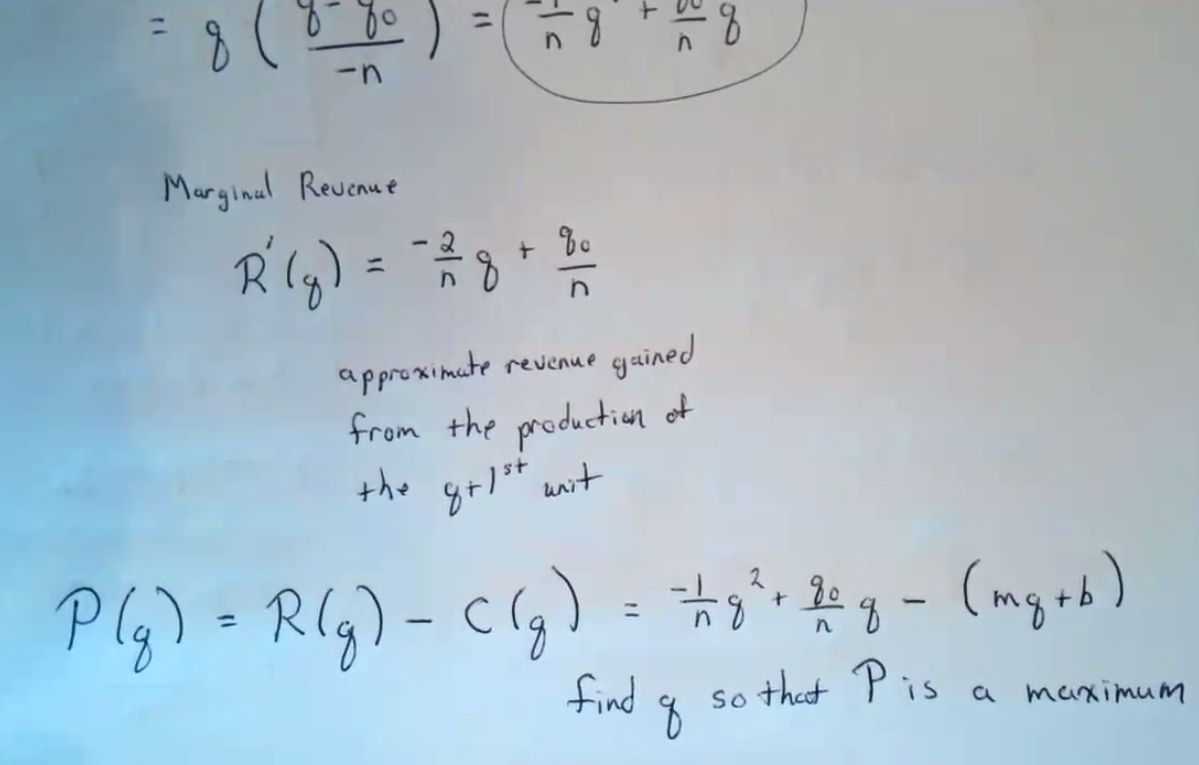 = q ( (q - q₀)/(-n) ) = -1/n q + q₀/n q
Marginal Revenue
R'(q) = -2/n q + q₀/n
approximate revenue gained
from the production of
the q+1ˢᵗ unit
P(q) = R(q) - C(q) = -1/n q² + q₀/n q - (mq+b)
find q so that P is a maximum